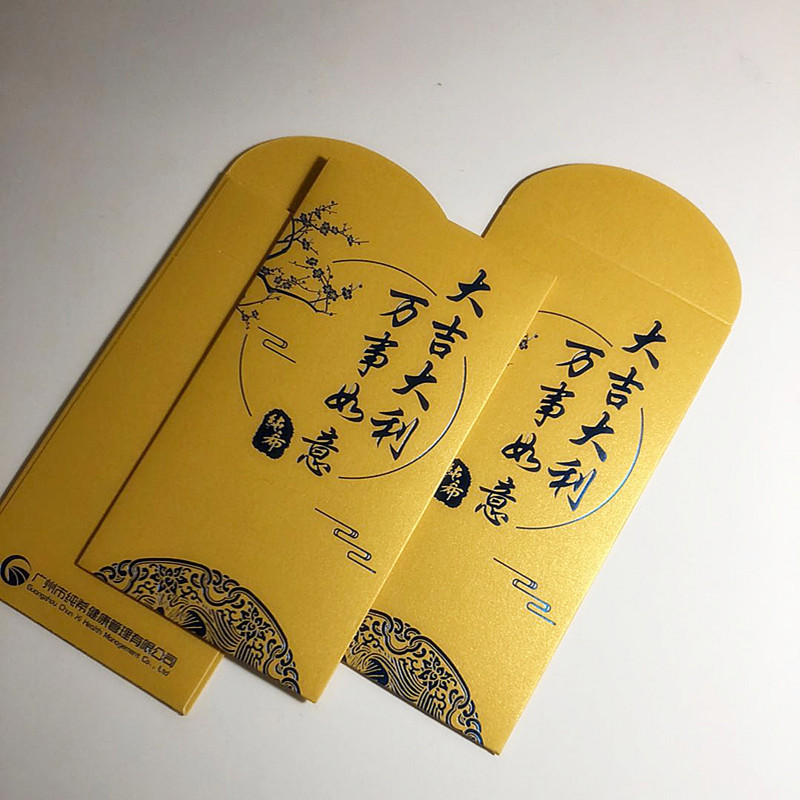 大吉大利
万事如意
纯希
大吉大利
万事如意
纯希
广州市纯希健康管理有限公司
Guangzhou Chun Xi Health Management Co., Ltd